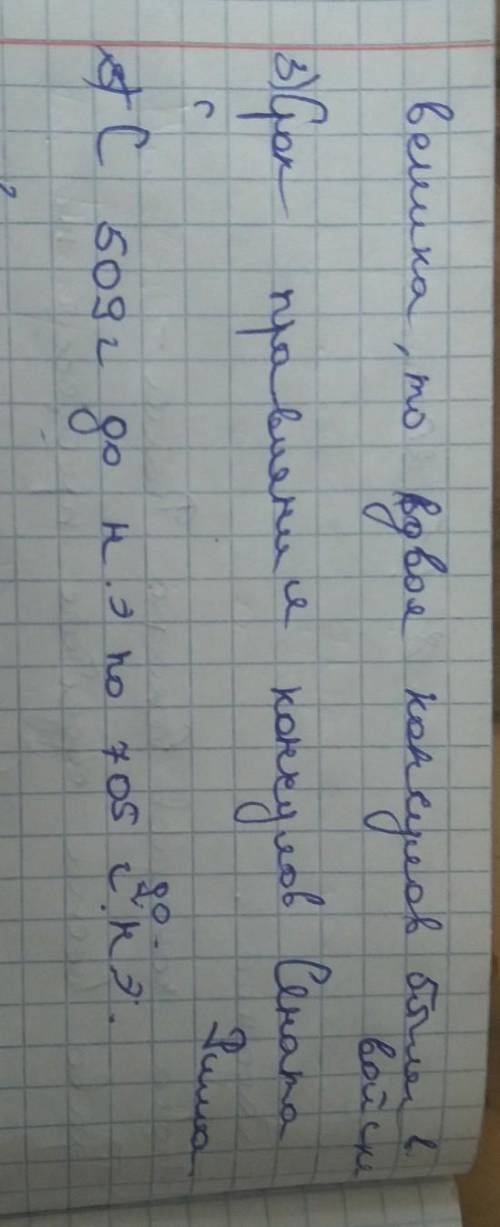 велика, то вдвоя консулов были в
войске
3) Срок правления консулов Сената
Рима
С 509 г до н.э по 705 г. до н.э.